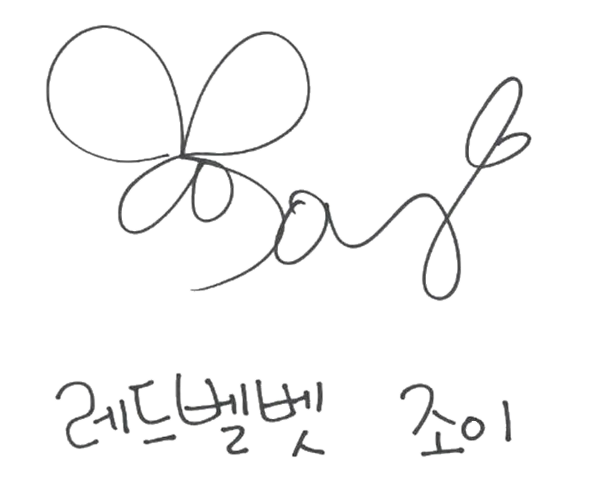 Joy
레드벨벳 조이